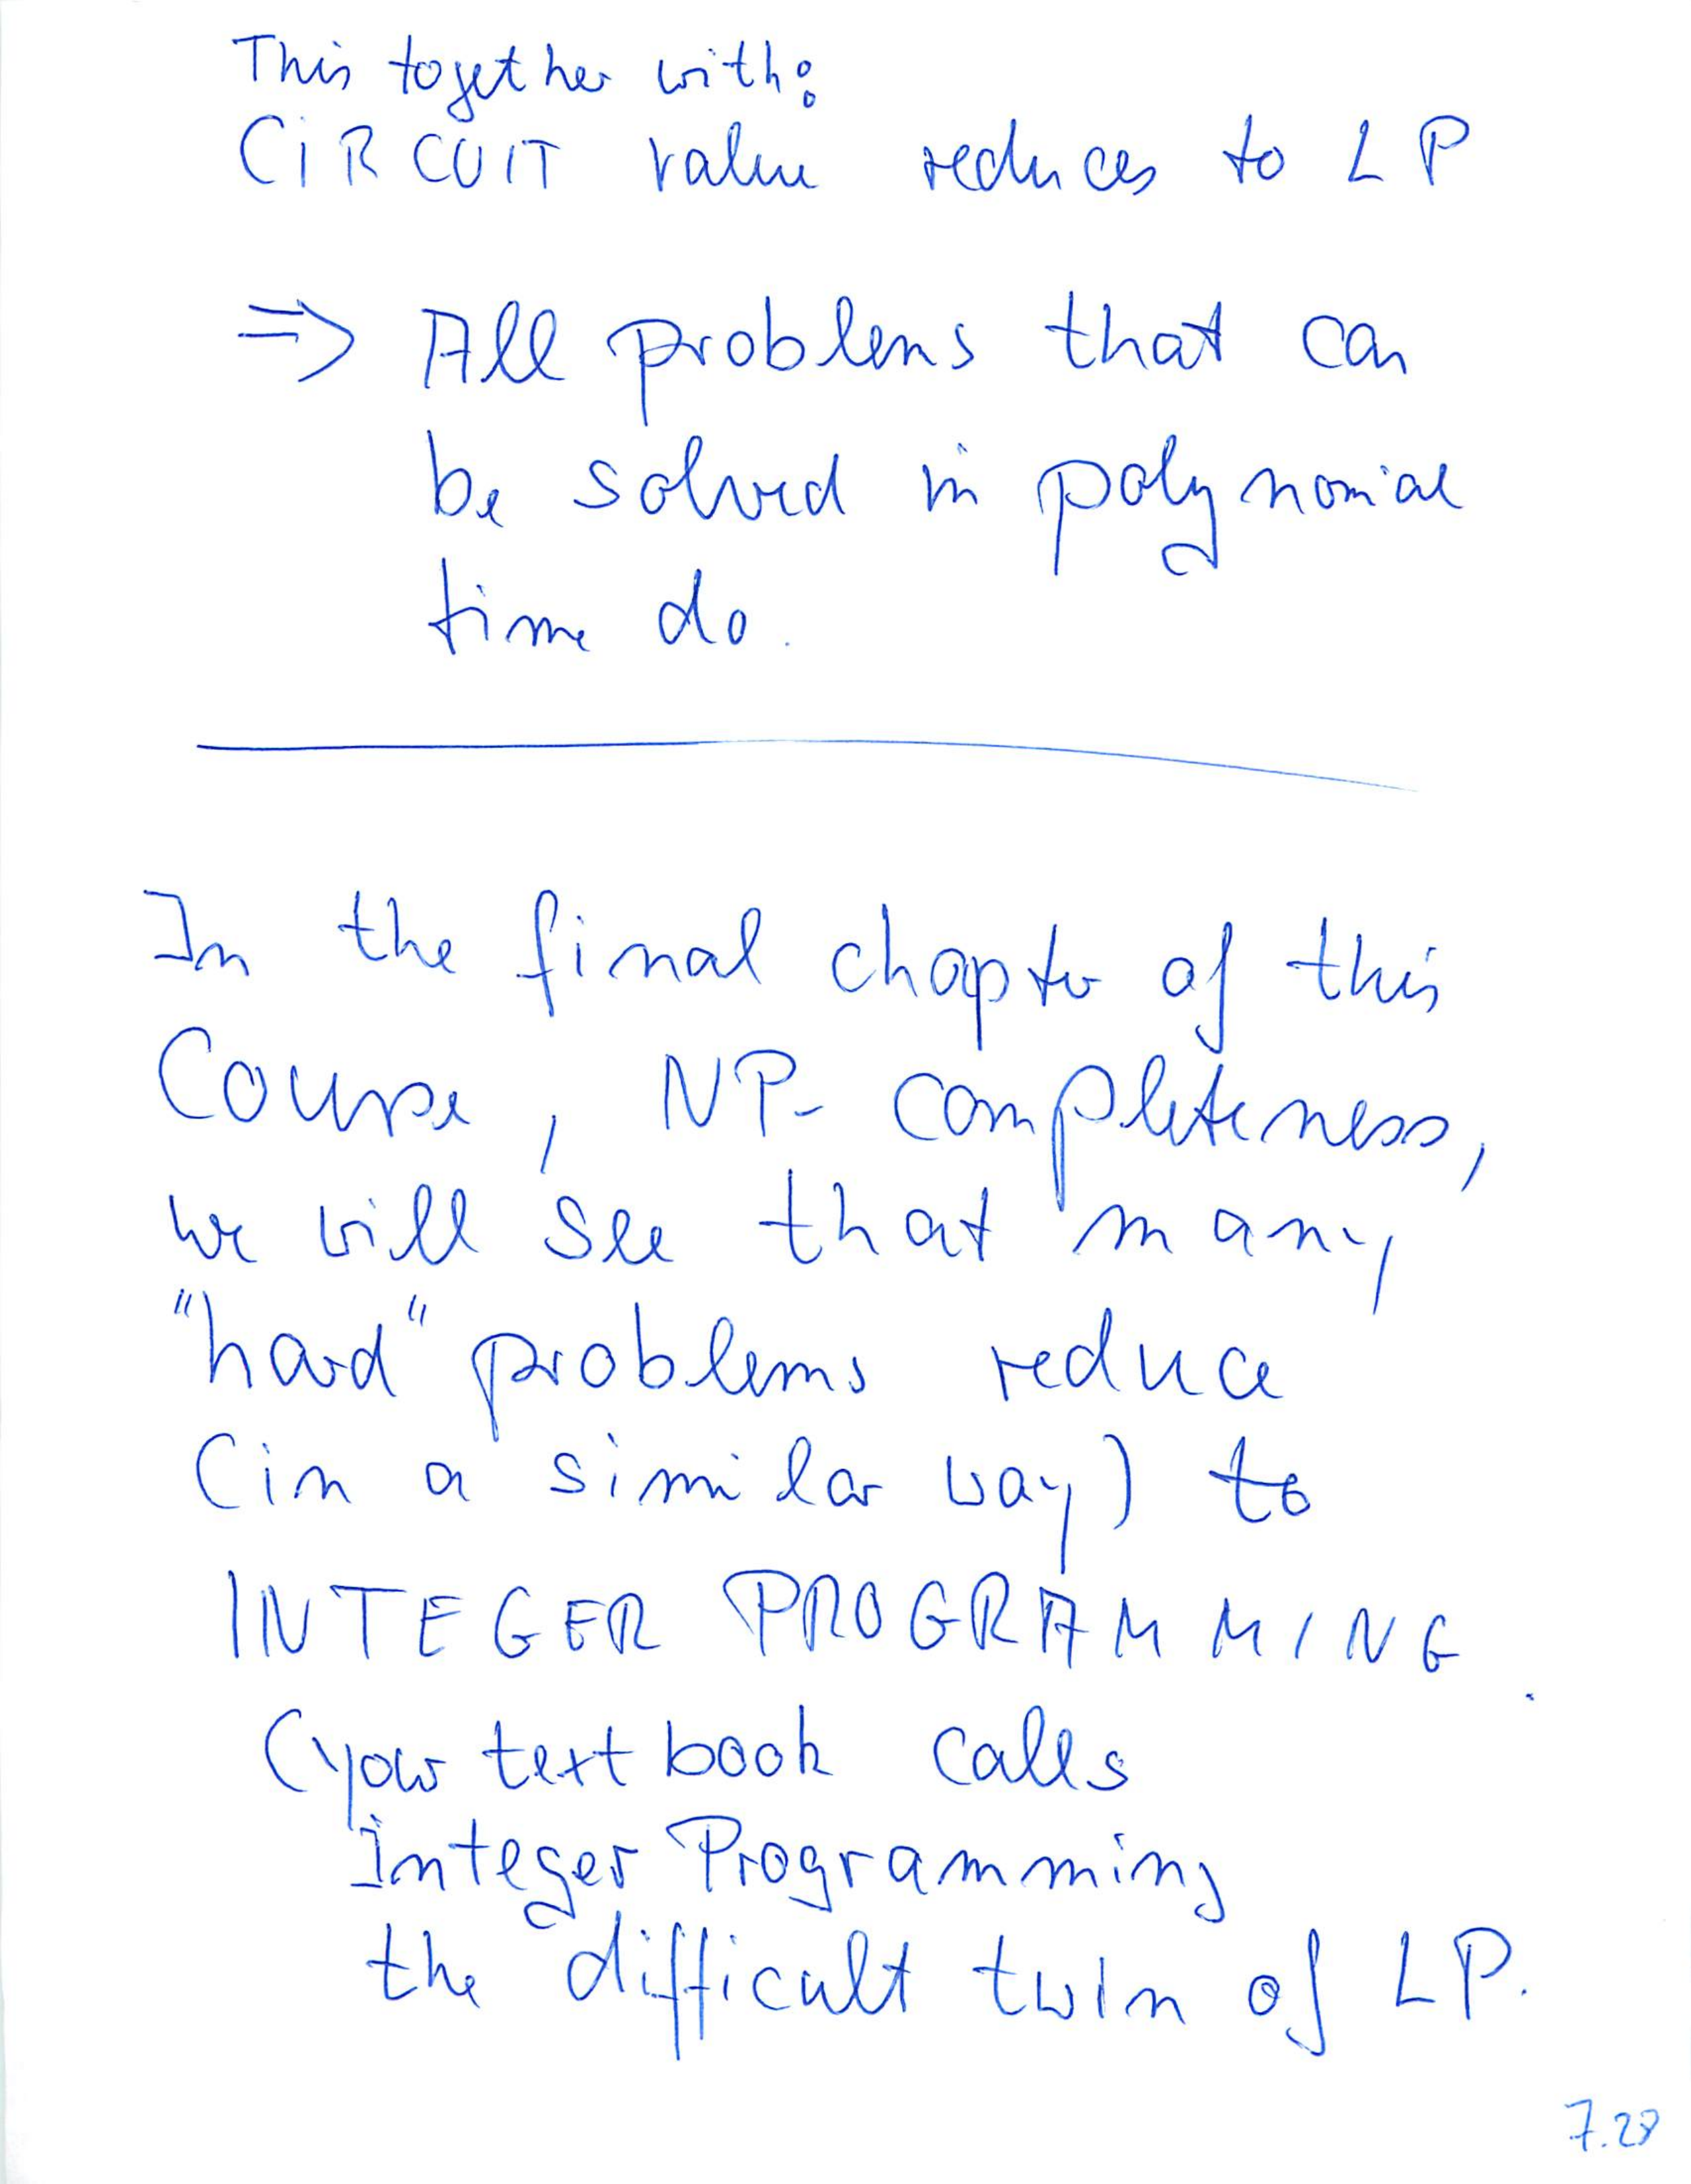 This together with:
CiRCUIT value reduces to LP
=> All problems that can
be solved in polynomial
time do.
In the final chapter of this
Course, NP-completeness,
we will see that many
"hard" problems reduce
(in a similar way) to
INTEGER PROGRAMMING.
(your textbook calls
Integer Programming
the difficult twin of LP.
7.28